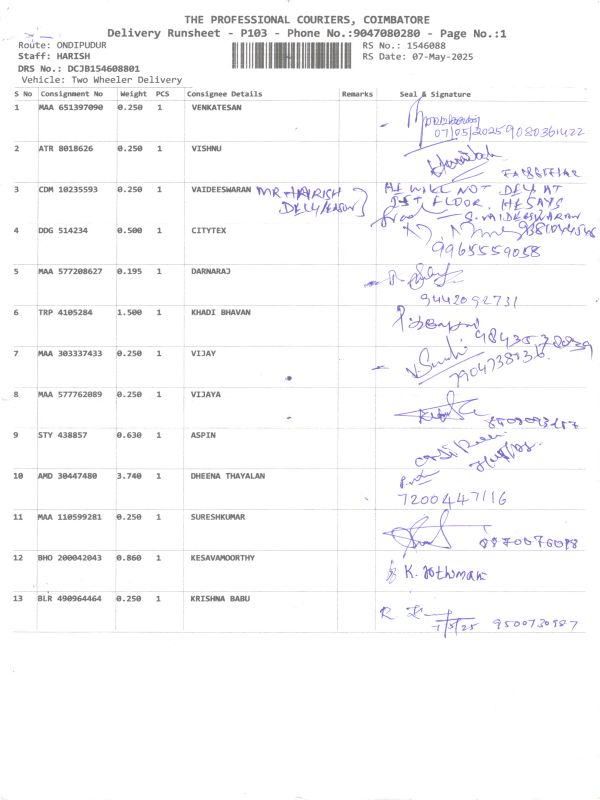 THE PROFESSIONAL COURIERS, COIMBATORE
Delivery Runsheet - P103 - Phone No.:9047080280 - Page No.:1
Route: ONDIPUDUR
RS No.: 1546088
Staff: HARISH
RS Date: 07-May-2025
DRS No.: DCJB154608801
Vehicle: Two Wheeler Delivery
S No Consignment No Weight PCS Consignee Details Remarks Seal & Signature
1 MAA 651397090 0.250 1 VENKATESAN
07/05/2025 9080361422
2 ATR 8018626 0.250 1 VISHNU
3 CDM 10235593 0.250 1 VAIDEESWARAN MR HARISH HE WILL NOT DELY AT
DELY PERSON 1ST FLOOR. HE SAYS
S. VAIDEESWARAN
4 DDG 514234 0.500 1 CITYTEX
9965559058
5 MAA 577208627 0.195 1 DARNARAJ
9442092731
6 TRP 4105284 1.500 1 KHADI BHAVAN
7 MAA 303337433 0.250 1 VIJAY
7904738136
8 MAA 577762089 0.250 1 VIJAYA
9 STY 438857 0.630 1 ASPIN
10 AMD 30447480 3.740 1 DHEENA THAYALAN
7200447116
11 MAA 110599281 0.250 1 SURESHKUMAR
12 BHO 200042043 0.860 1 KESAVAMOORTHY
K. Jothimani
13 BLR 490964464 0.250 1 KRISHNA BABU
7/5/25 9500730587